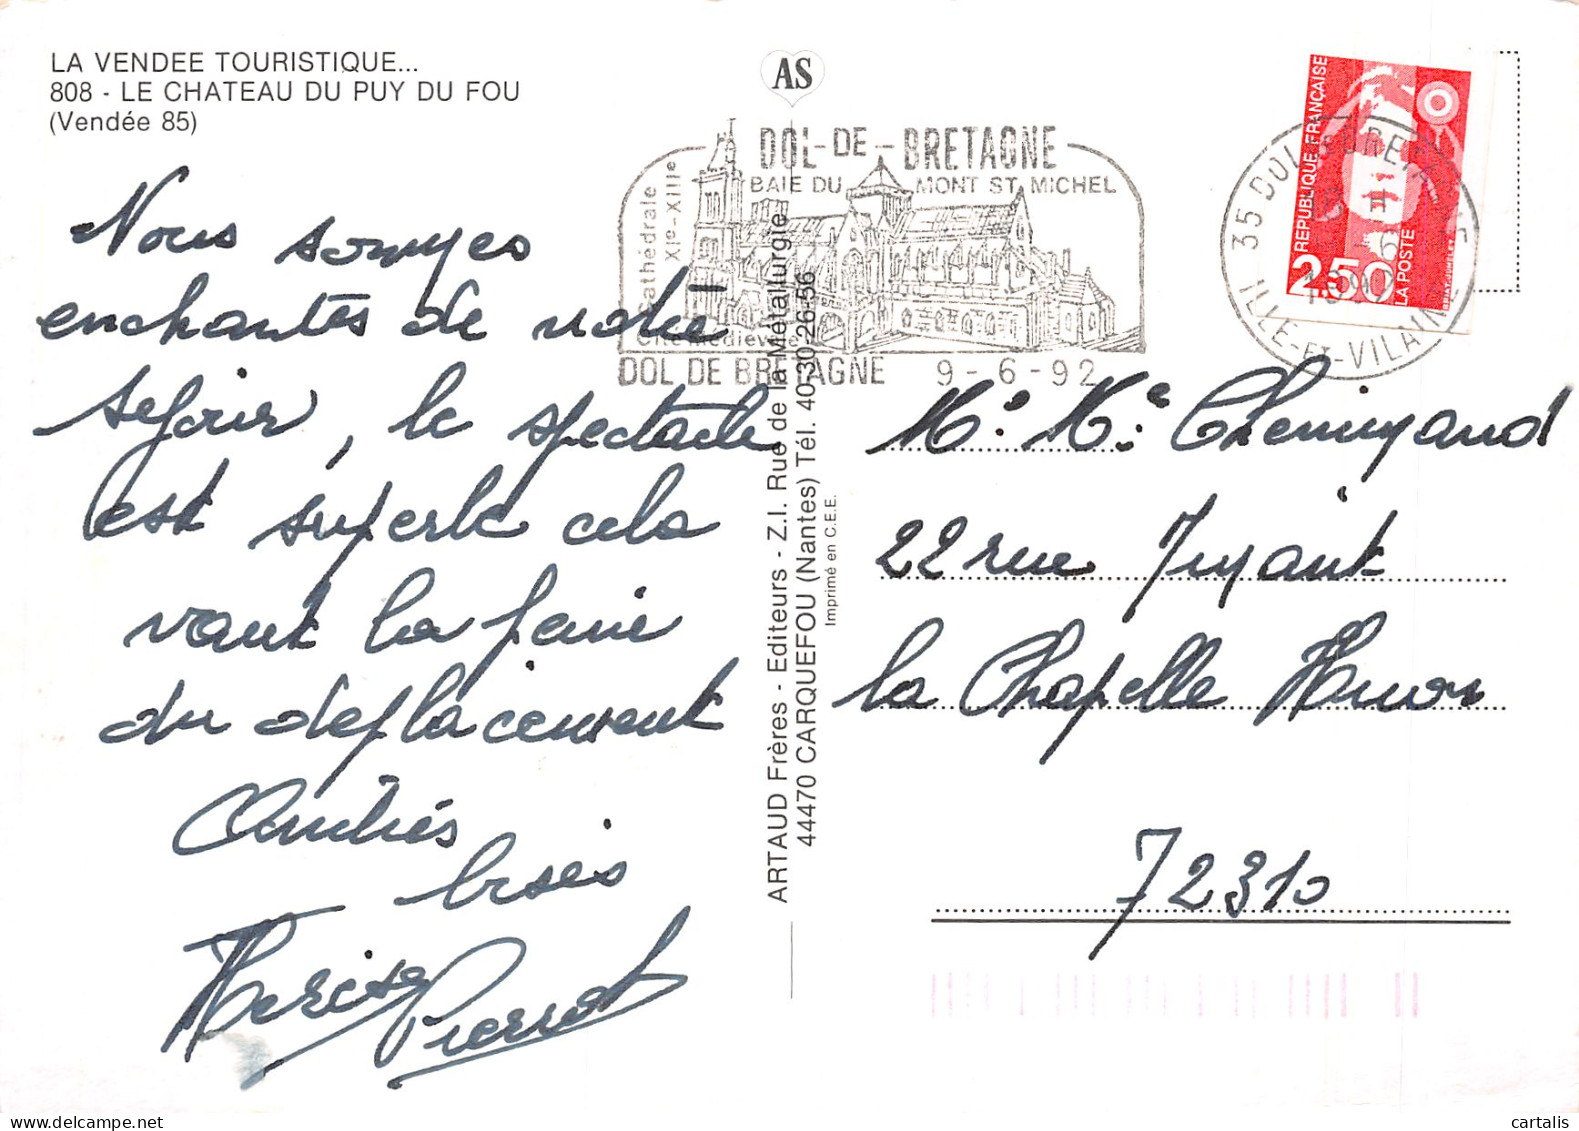 LA VENDEE TOURISTIQUE...
808 - LE CHATEAU DU PUY DU FOU
(Vendée 85)
Nous sommes
enchantés de notre
séjour, le spectacle
est superbe cela
vaut la peine
du deplacement
Amitiés
bises
Pierrot
AS
DOL-DE-BRETAGNE
BAIE DU MONT ST MICHEL
Cathédrale
XIe-XIIIe
Cité Médiévale
DOL DE BRETAGNE 9-6-92
ARTAUD Frères - Editeurs - Z.I. Rue de la Métallurgie
44470 CARQUEFOU (Nantes) Tél. 40-30-26-56
Imprimé en C.E.E.
REPUBLIQUE FRANÇAISE
2,50
LA POSTE
35 DOL DE BRETAGNE
ILLE-ET-VILAINE
Mr. Me. Chemynand
22 rue
La Chapelle Huon
72310
cartalis